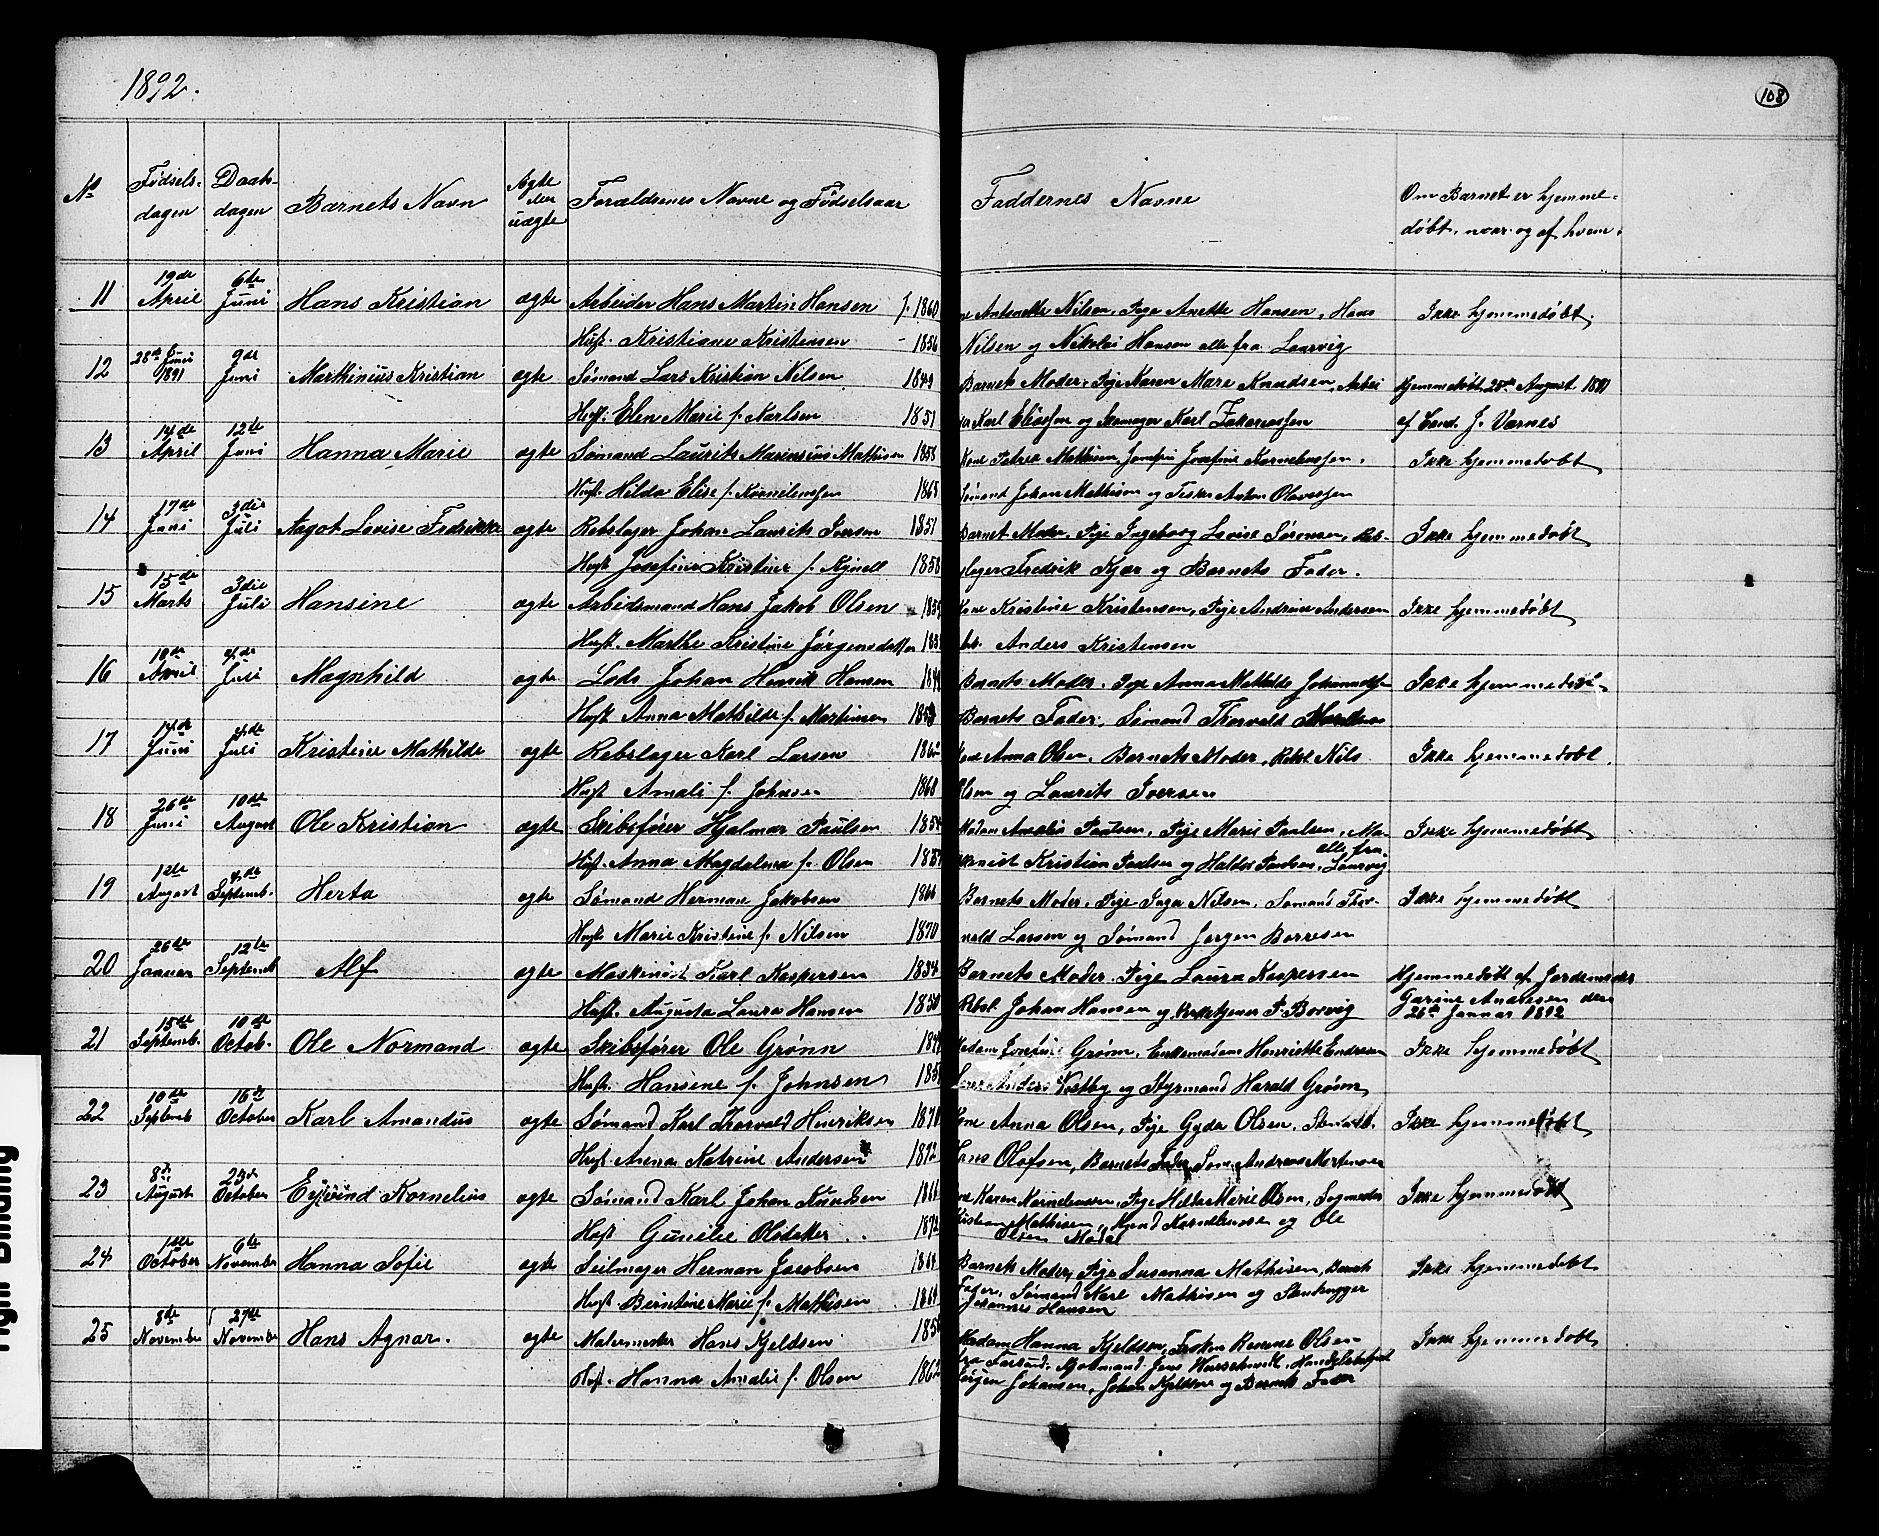 1892.
108
No Fødsels-dagen Daabs-dagen Barnets Navn Ægte eller uægte Forældrenes Navne og Fødselsaar Faddernes Navne Om Barnet er hjemme-døbt, naar og af hvem.
11 19de April 6te Juni Hans Kristian ægte Arbeider Hans Martin Hansen f. 1860 Antonette Nilsen, Pige Anette Hansen, Hans Ikke hjemmedøbt.
Hust. Kristiane Kristensen - 1856 Nilsen og Nikolai Hansen alle fra Laurvig
12 28de Juni 1891 9de Juni Marthinius Kristian ægte Sømand Lars Kristian Nilsen 1849 Barnets Moder, Pige Karen Mare Knudsen, Arbei Hjemmedøbt 28de August 1891
Hust. Elen Marie f. Karlsen 1851 Karl Eliassen og Skomager Karl Zakariassen af Cand. J. Varnes
13 14de April 12te Juni Hanna Marie ægte Sømand Laurits Marinius Mathisen 1858 Kone Petrea Mathisen, Jomfru Josefine Korneliussen, Ikke hjemmedøbt
Hust. Hilda Elise f. Korneliussen 1865 Sømand Johan Mathisen og Fisker Anton Olavessen
14 17de Juni 3die Juli Aagot Lovise Fredrikke ægte Rebslager Johan Laurits Iversen 1851 Barnets Moder, Pige Ingeborg Lovise Sørensen, Reb- Ikke hjemmedøbt
Hust. Josefine Kristine f. Kynell 1858 slager Fredrik Kjær og Barnets Fader.
15 15de Marts 3die Juli Hansine ægte Arbeidsmand Hans Jakob Olsen Kone Kristine Kristensen, Pige Andrine Andersen Ikke hjemmedøbt
Hust. Marthe Kristine Jørgensdatter Anders Kristensen
16 18de April 4de Juli Magnhild ægte Lods Johan Henrik Hansen Barnets Moder, Pige Anna Mathilde Johannessen Ikke hjemmedøbt
Hust. Anna Mathilde f. Martinsen 1853 Barnets Fader, Sømand Thorvald
17 14de Juni 4de Juli Kristine Mathilde ægte Rebslager Karl Larsen Kone Anna Olsen, Barnets Moder, Rebsl. Nils Ikke hjemmedøbt.
Hust. Amali f. Johnsen 1868 Olsen og Laurits Iversen
18 26de Juni 10de August Ole Kristian ægte Skibsfører Hjalmar Paulsen 1854 Madam Amalia Paulsen, Pige Marie Paulsen, Ma- Ikke hjemmedøbt
Hust. Anna Magdalena f. Olsen skinist Kristian Paulsen og Haldor Paulsen, alle fra Laurvig
19 1ste August 4de Septemb. Herta ægte Sømand Herman Jakobsen 1866 Barnets Moder, Pige Inga Nilsen, Sømand Thor- Ikke hjemmedøbt
Hust. Marie Kristine f. Nilsen 1870 vald Larsen og Sømand Jørgen Borresen
20 26de Januar 12te Septemb Alf ægte Maskinist Karl Kaspersen 1834 Barnets Moder, Pige Laura Kaspersen Hjemmedøbt af Jordemoder
Hust. Augusta Laura Hansen 1850 Rebsl. Johan Hansen og Kirketjener P. Borvig Garine Andresen den
26de Januar 1892
21 15de Septemb. 10de Octob. Ole Normand ægte Skibsfører Ole Grønn Madam Josefine Grønn, Enkemadam Henriette Endresen Ikke hjemmedøbt
Hust. Hansine f. Johnsen Anders Vestby og Styrmand Harald Grønn
22 10de Septemb 16de October Karl Amandus ægte Sømand Karl Thorvald Hinriksen 1870 Kone Anna Olsen, Pige Gyda Olsen, Ikke hjemmedøbt
Hust. Anna Katrine Andersen 1872 Hans Olofsen, Barnets Fader, Søm. Andreas Mortensen
23 8de August 23de October Eyvind Kornelius ægte Sømand Karl Johan Knudsen Karen Korneliussen, Pige Hilda Marie Olsen, Ikke hjemmedøbt
Hust. Gunilie Olsdatter 1872 Kristian Mathisen, Korneliussen og Ole
Olsen
24 1ste October 9de Novembe Hanna Sofie ægte Seilmager Herman Jacobsen 1864 Barnets Moder, Pige Susanna Mathisen, Barnets Ikke hjemmedøbt
Hust. Berntine Marie f. Mathisen Fader, Sømand Karl Mathisen og Stenhugger
Johannes Hansen
25 8de Novembe 27de Novembe Hans Agnar. ægte Malermester Hans Kjeldsen Madam Hanna Kjeldsen, Frøken Olsen Ikke hjemmedøbt
Hust. Hanna Amalie f. Olsen 1862 fra Farsund, Jens Handelsbetjent
Jørgen Johansen, Johan Kjeldsen og Barnets Fader